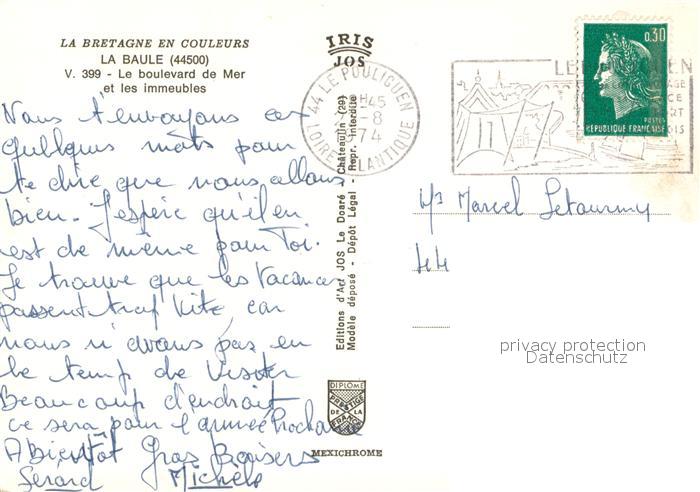 LA BRETAGNE EN COULEURS
LA BAULE (44500)
V. 399 - Le boulevard de Mer
et les immeubles
Nous t'envoyons ces
quelques mots pour
te dire que nous allons
bien. J'espère qu'il en
est de même pour Toi.
Je trouve que les Vacances
passent trop vite, car
nous n'avons pas eu
le temp de visiter
Beaucoup d'endroit
ce sera pour l'année Prochaine
A Bientôt Gros Baisers
Gérard Michèle
IRIS
JOS
Editions d'Art JOS Le Doaré - Châteaulin (29)
Modèle déposé - Dépôt Légal - Repr. interdite
DIPLOME
PRESTIGE
DE LA
FRANCE
MEXICHROME
44 LE POULIGUEN
H45
-8
74
LOIRE ATLANTIQUE
0,30
POSTES
REPUBLIQUE FRANCAISE
Mr Marcel Letourmy
44
privacy protection
Datenschutz